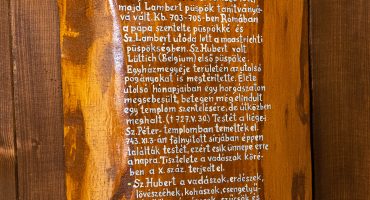 majd Lambert püspök tanítványá-
vá vált. Kb. 703-705-ben Rómában
a pápa szentelte püspökké és
Sz. Lambert utóda lett a maastrichti
püspökségben. Sz. Hubert volt
Lüttich (Belgium) első püspöke.
Egyházmegyéje területén az utolsó
pogányokat is megtérítette. Élete
utolsó hónapjaiban egy horgászaton
megsebesült, betegen még elindult
egy templom szentelésére, de útközben
meghalt. († 727.V.30.) Testét a liégei
Sz. Péter-templomban temették el.
743.XI.3-án fölnyitott sírjában éppen
találták testét, ezért esik ünnepe erre
a napra. Tisztelete a vadászok köré-
ben a X. száz. terjedt el.
- Sz. Hubert a vadászok, erdészek,
lövészcéhek, kohászok, csengelyű-